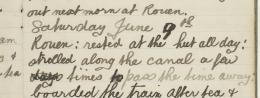 out next morn at Rouen.
Saturday June 9th
Rouen: rested at the hut all day:
strolled along the canal a few
times to pass the time away:
boarded the train after tea &